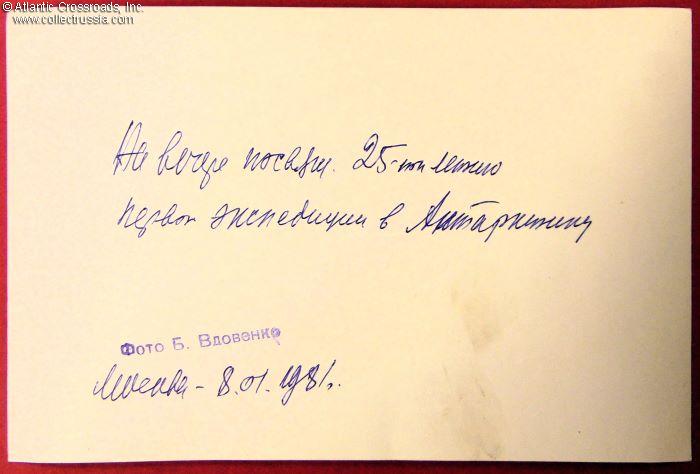 © Atlantic Crossroads, Inc.
www.collectrussia.com
На вечере посвящ. 25-ти летию
первой экспедиции в Антарктику
Фото Б. Вдовенко
Москва - 8.01.1981г.